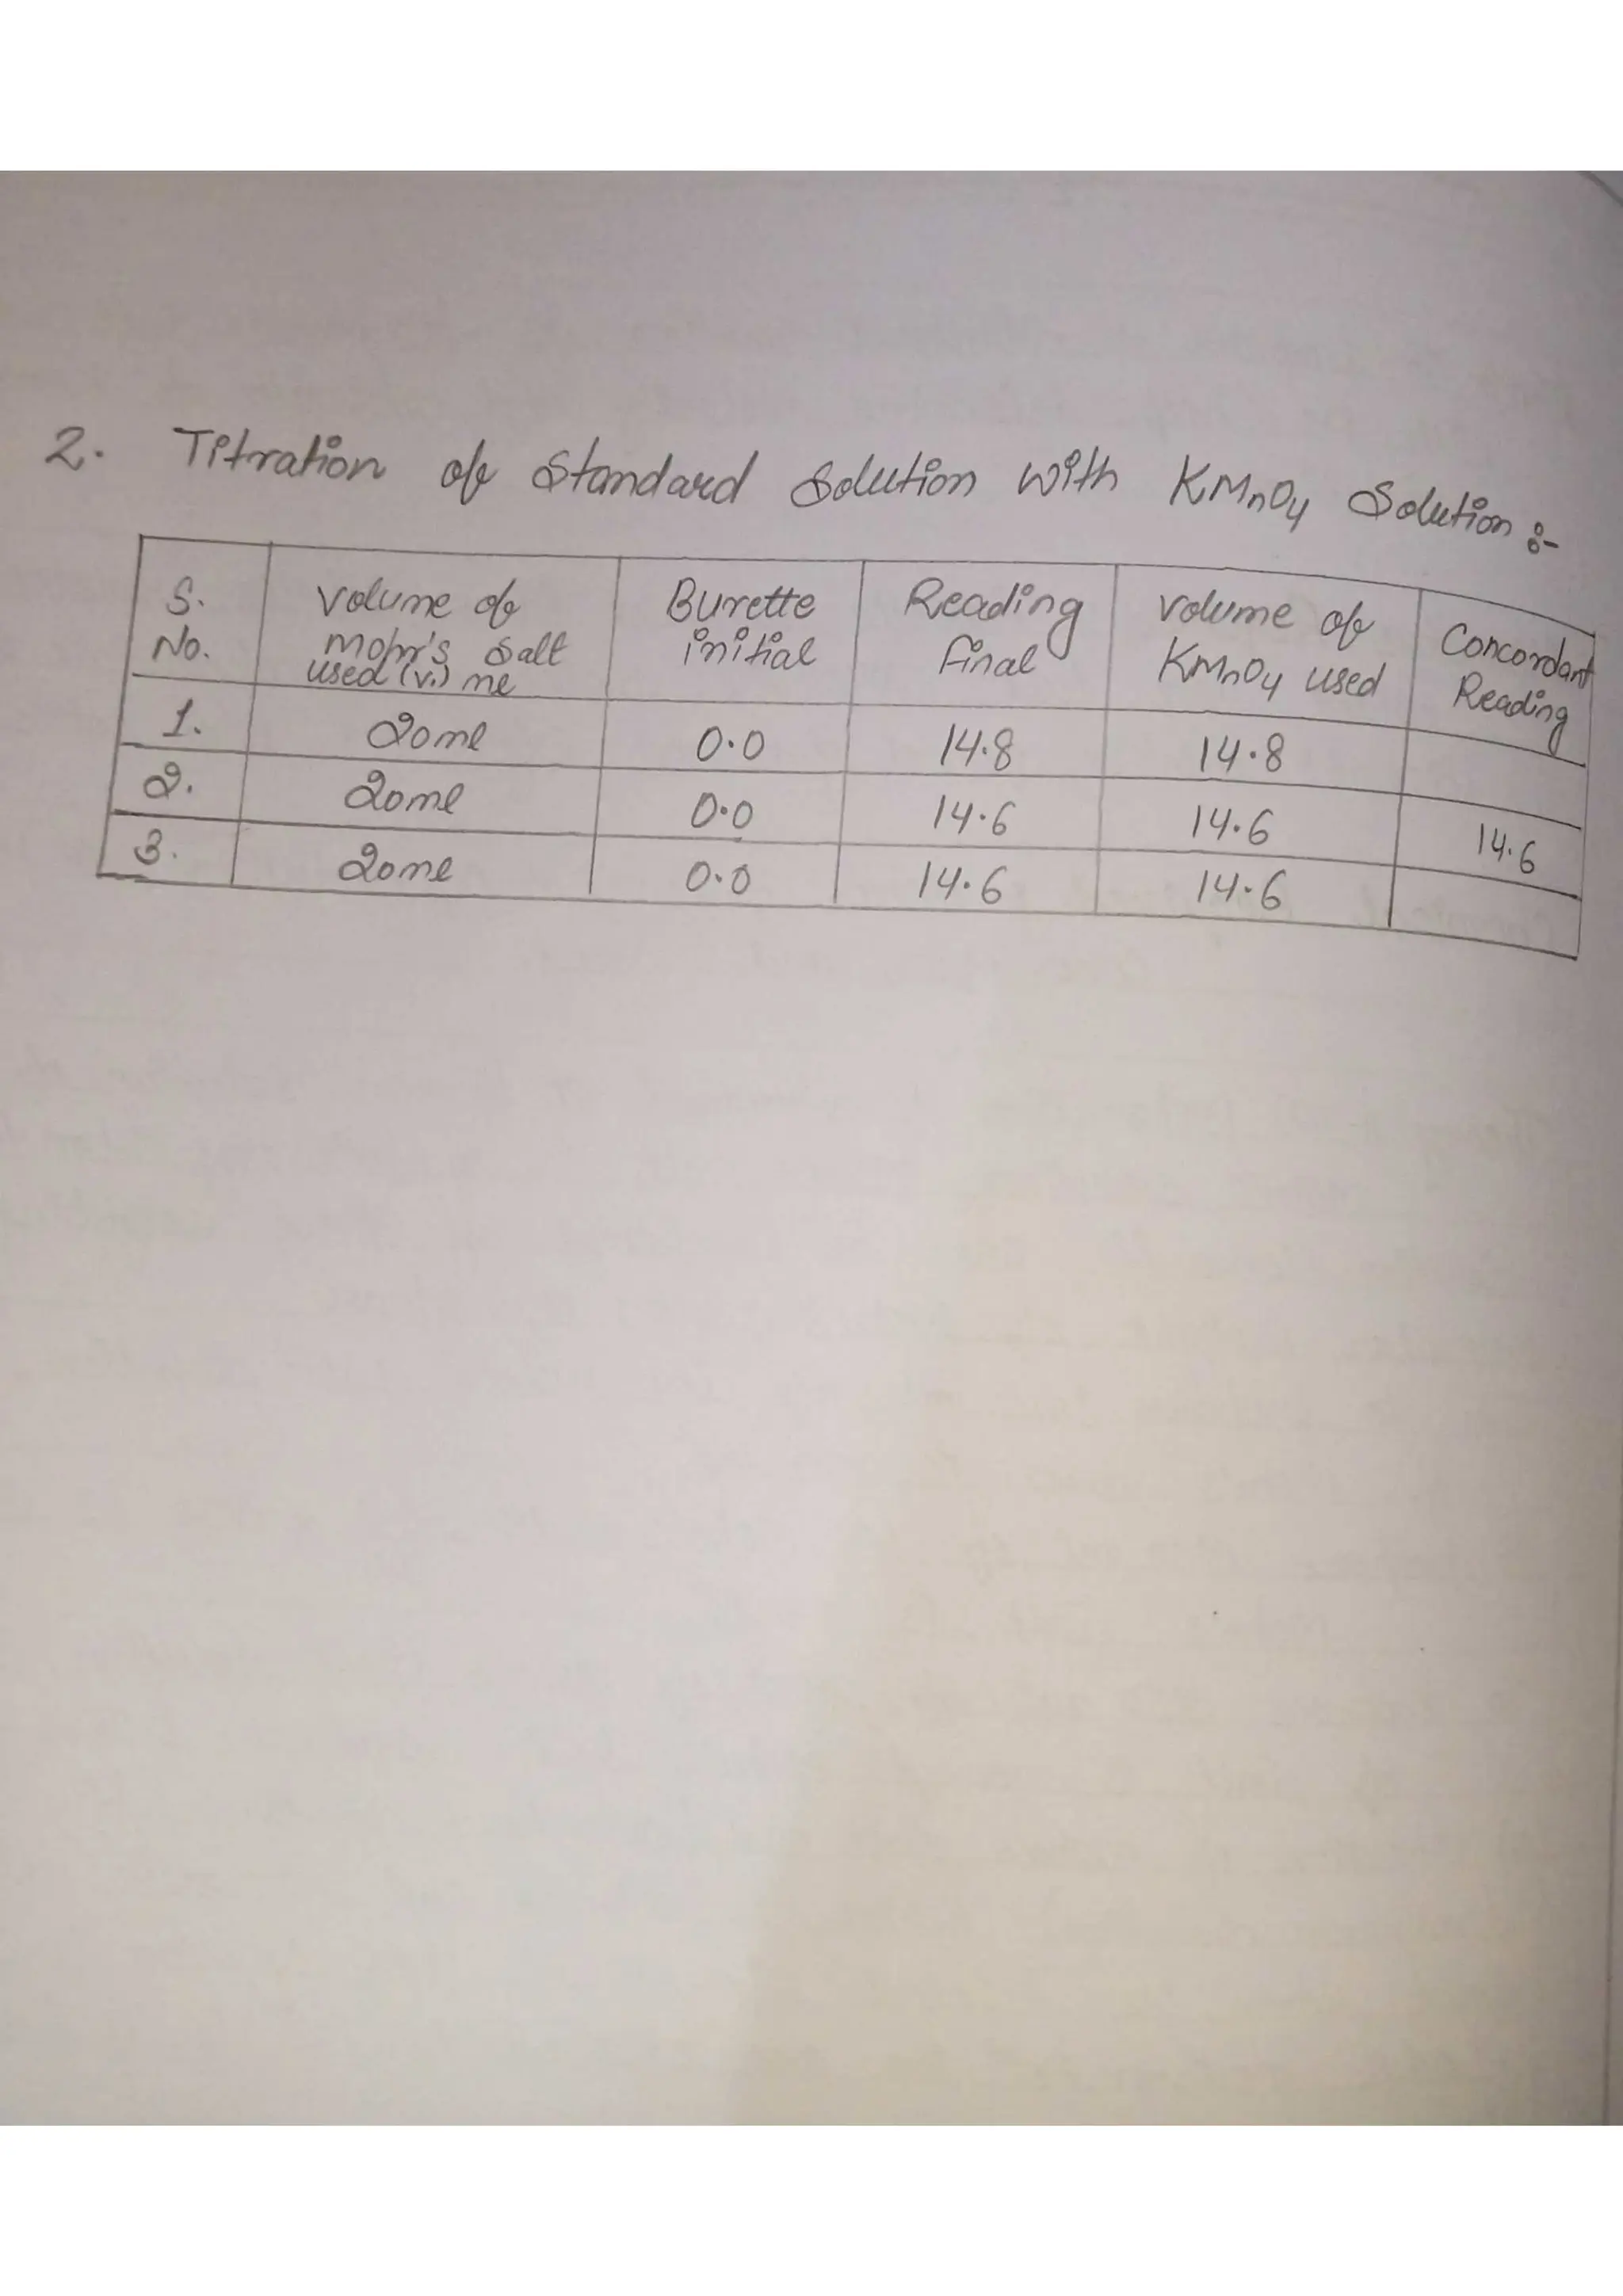 2. Titration of Standard Solution with KMnO4 Solution :-
S. No. | Volume of mohr's salt used (V.) ml | Burette initial | Reading final | Volume of KMnO4 used | Concordant Reading
1. | 20ml | 0.0 | 14.8 | 14.8
2. | 20ml | 0.0 | 14.6 | 14.6 | 14.6
3. | 20ml | 0.0 | 14.6 | 14.6